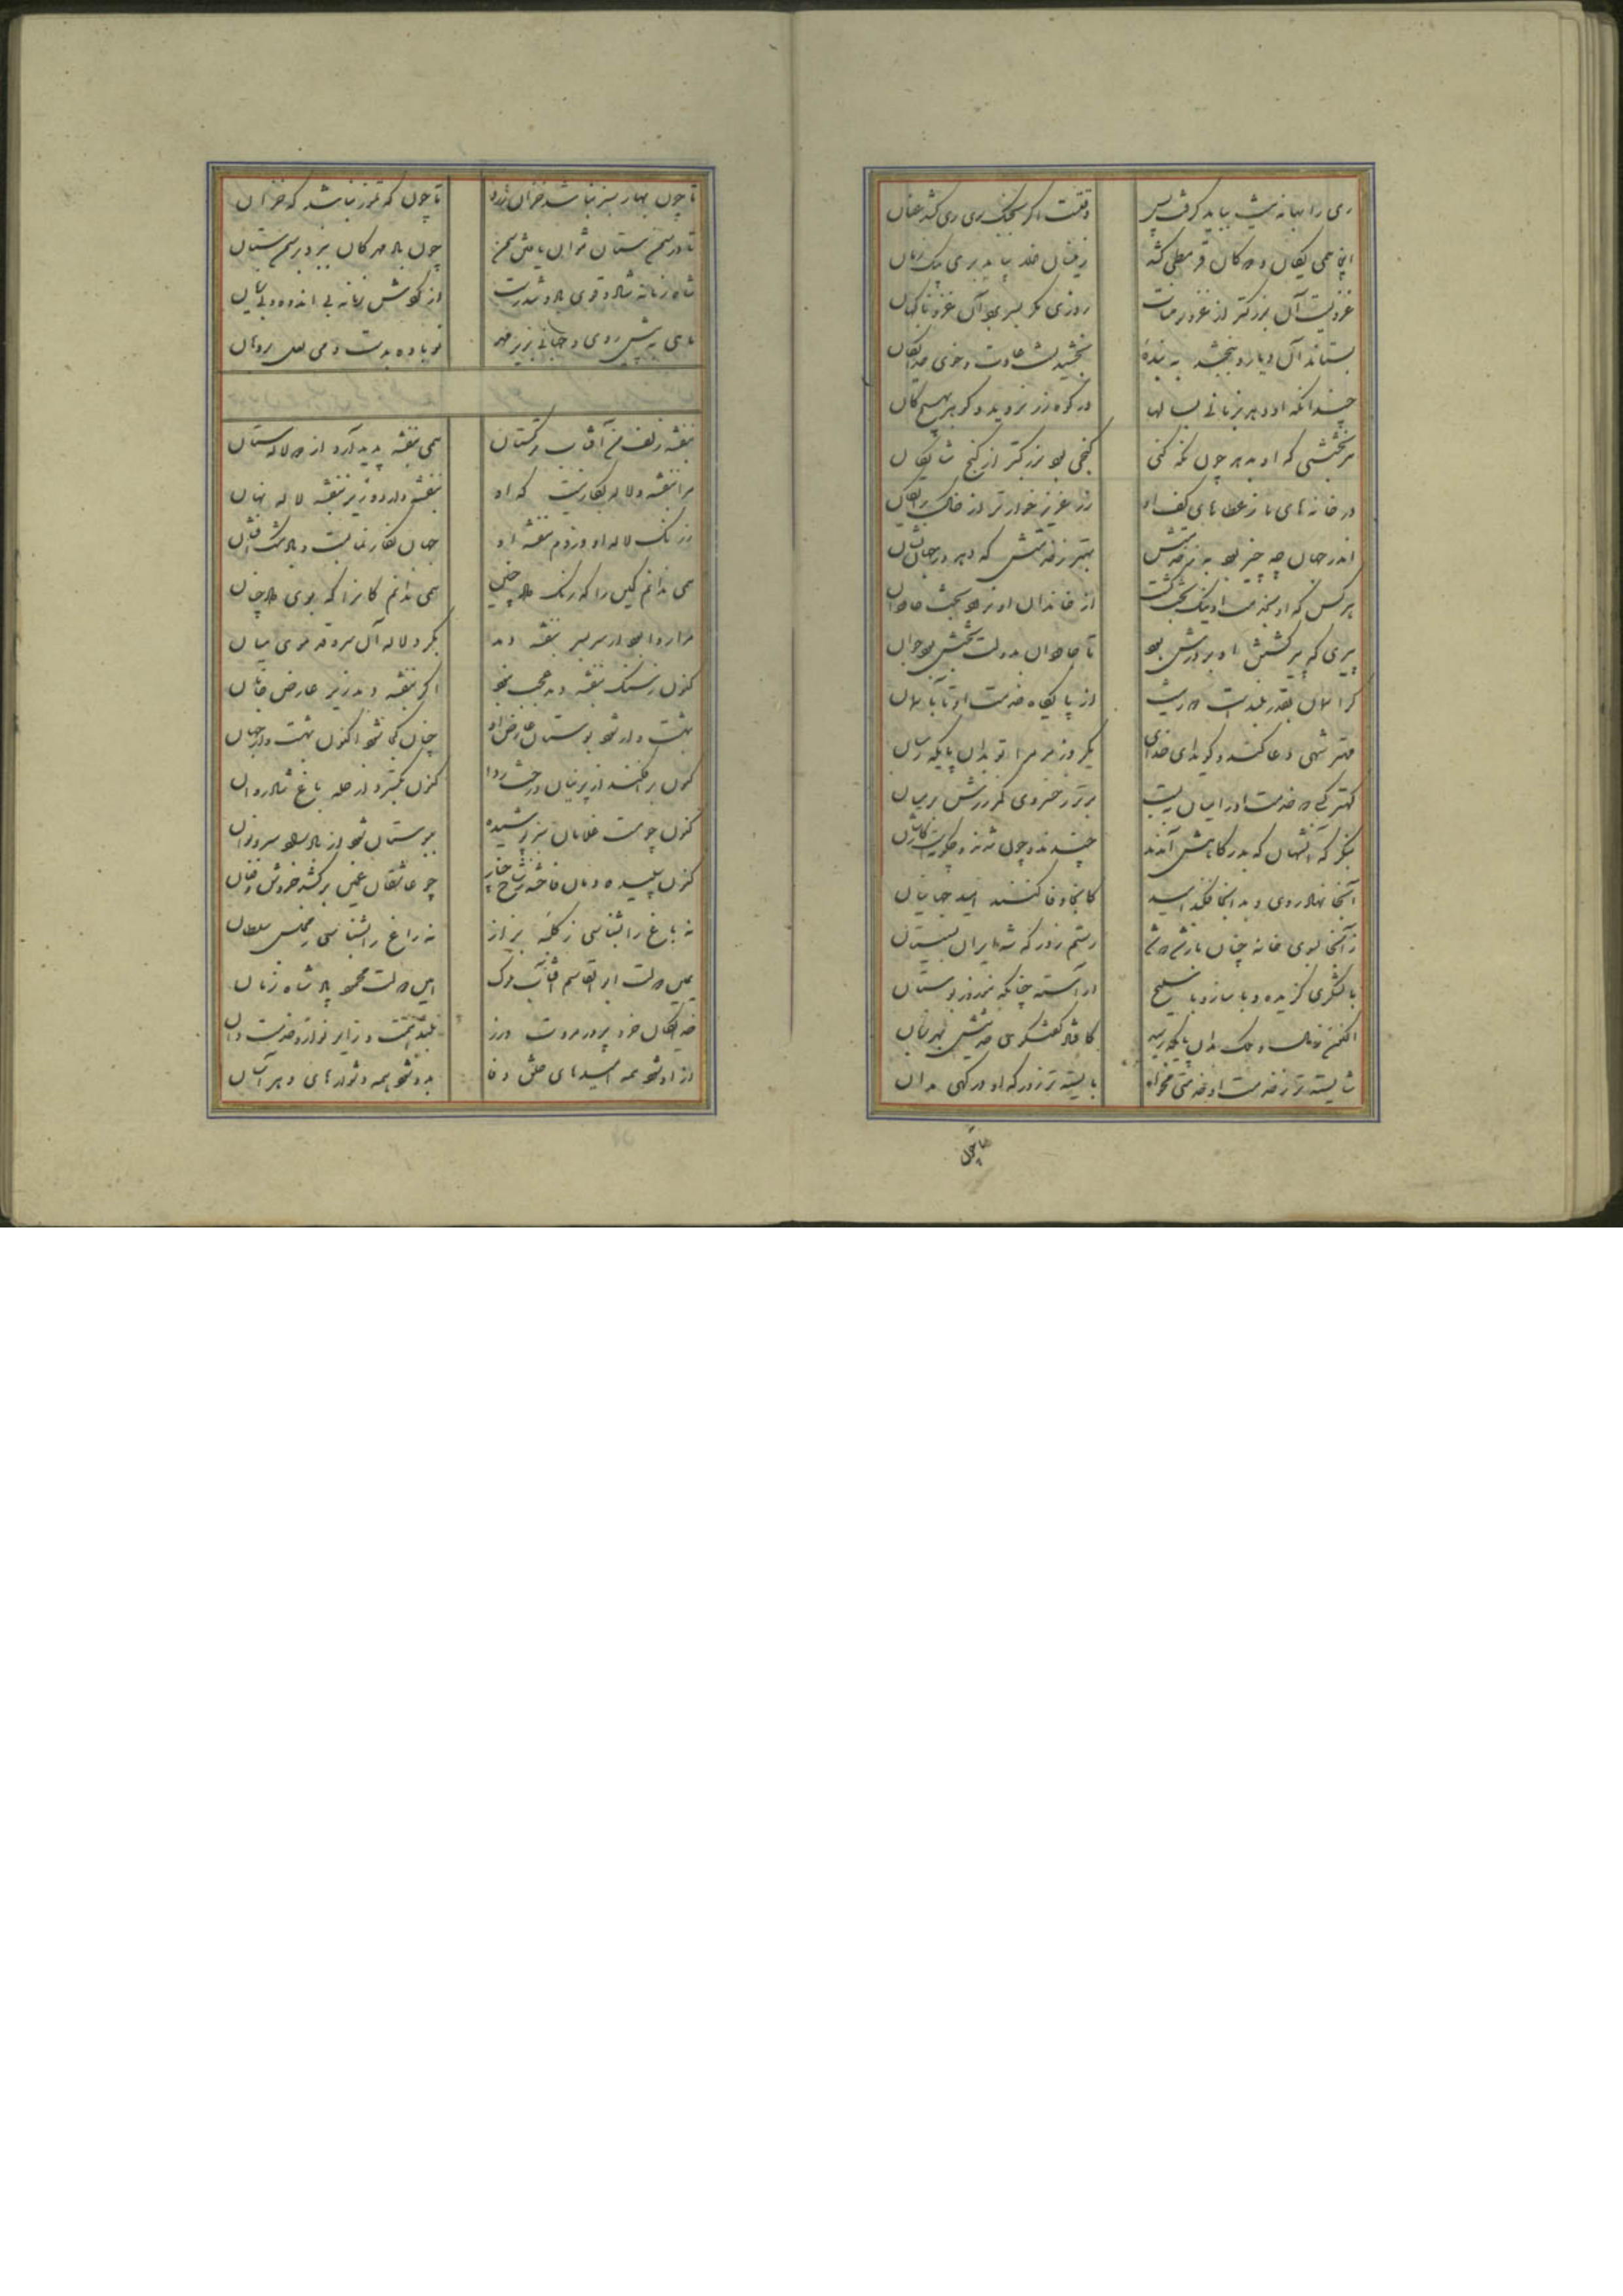 ری را بهانه نیست بباید گرفت پس وقتست اگر بجنگ ری ری کشد عنان
اینجا همی یکان و دوکان قرمطی کشد زینان هزار بباید بری
غزویست آن بزرگتر از غزو سومنات روزی مگر بسر برد آن غزو ناگهان
بستاند آن دیار و ببخشد به بنده بخشیدنست عادت و خوی خدایگان
چندانکه او دهد بزمانی بسالها در کوه زر نروید و گوهر بهیچ کان
هر بخششی که او بدهد چون نگه کنی گنجی بود بزرگتر از گنج شایگان
در خانه های ما ز عطاهای کف او زر عزیز خوارتر از خاک رایگان
اندر جهان چه چیز بود به ز خدمتش بهتر ز خدمتش که دهد در جهان نشان
هر کس که او بخدمت او نیکبخت گشت از خاندان او نرود بخت جاودان
پیری که پیر گشتن او بر درش بود تا جاودان بدولت و بختش بود جوان
از پایگاه خدمت او تا بآسمان
مهتر شهی دعا کند و گوید ای خدای یکروز مر مرا تو بدان پایگه رسان
کهتر کسی که خدمت او را میان ببست برتر ز خسروی کمر زرش بر میان
بنگر که آن شهان که بدرگاهش آمدند چند و چون شدند و چگونست کارشان
آنجا نهاد روی و بدانجا فکند امید کانجا وفا کنند امید جهانیان
زانجا بسوی خانه چنان باز شد که شد رستم ز درگه شه ایران بسیستان
با لشکری گزیده و با ساز و با سلیح آراسته چنانکه بنوروز بوستان
اکنون بدان پایگه رسید کش خدمتش بهر زمان
شایسته تر ز خدمت او خدمتی مخواه بایسته تر ز درگه او درگهی مدان
تا چون
تا چون بهار سبز نباشد خزان زرد تا چون تموز نباشد که خزان
تا در سمن ستان نتوان یافتن سمن چون باد مهرگان بوزد بر سمنستان
شاه زمانه شاد و قوی باد و تندرست از گردش زمانه بی اندوه و بی زیان
ماهی به پیش روی و جهانی بزیر مهر نوباوه بدست و می لعل بر دهان
بنفشه زلف من آفتاب ترکستان همی بنفشه پدید آرد از دو لاله ستان
مرا بنفشه و لاله بکار نیست که او بنفشه دارد و زیر بنفشه لاله نهان
ز رنگ لاله او وز دم بنفشه او جهان نگار نمایست و باد مشک افشان
همی ندانم کاین را که رنگ داد چنین همی ندانم کانرا که بوی داد چنان
مرا روا بود ار سر بسر بنفشه دمد بگرد لاله آن سرو قد موی میان
کنون ز سنگ بنفشه دمد عجب نبود اگر بنفشه دمد زیر عارض جانان
بهشت وار شود بوستان چنان کجا شد اکنون بهشت وار جهان
کنون برافکند از پرنیان درخت ردا کنون بگسترد از حله باغ شادروان
کنون چو مست غلامان سبز پوشیده ببوستان شود از باد سرو نوان
کنون سپیده دمان فاخته ز شاخ چنار چو عاشقان غمین برکشد خروش و فغان
نه باغ را بشناسی ز کلبه بزاز نه راغ را بشناسی ز مجلس سلطان
یمین دولت ابوالقاسم آفتاب ملوک امین ملت محمود پادشاه زمان
خدایگان خرد پرور مروت ورز بلند همت و زایر نواز و خدمت دان
از او شود همه امیدهای خلق وفا بدو شود همه دشوارهای دهر آسان